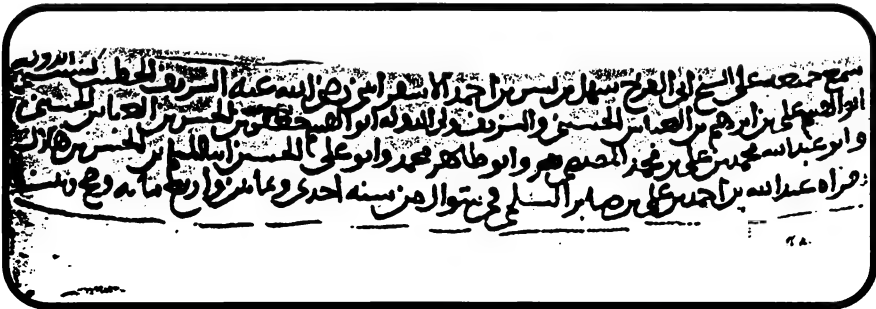 سمع جميعه على الشيخ ابى الفرج سهل بن بشر بن احمد الاسفراينى رضى الله عنه الشريف الخطيب نسيب الدولة
ابو القسم على بن ابرهيم بن العباس الحسينى والشريف ولى الدوله ابو القسم بن الحسن بن العباس الحسينى
وابو عبدالله محمد بن على بن محمد المصيصى وابو طاهر محمد وابو على الحسن ابنا المسلم بن الحسن بن هلال
بقراه عبدالله بن احمد بن على بن صابر السلمى فى شوال من سنه احدى وثمانين واربع مائه